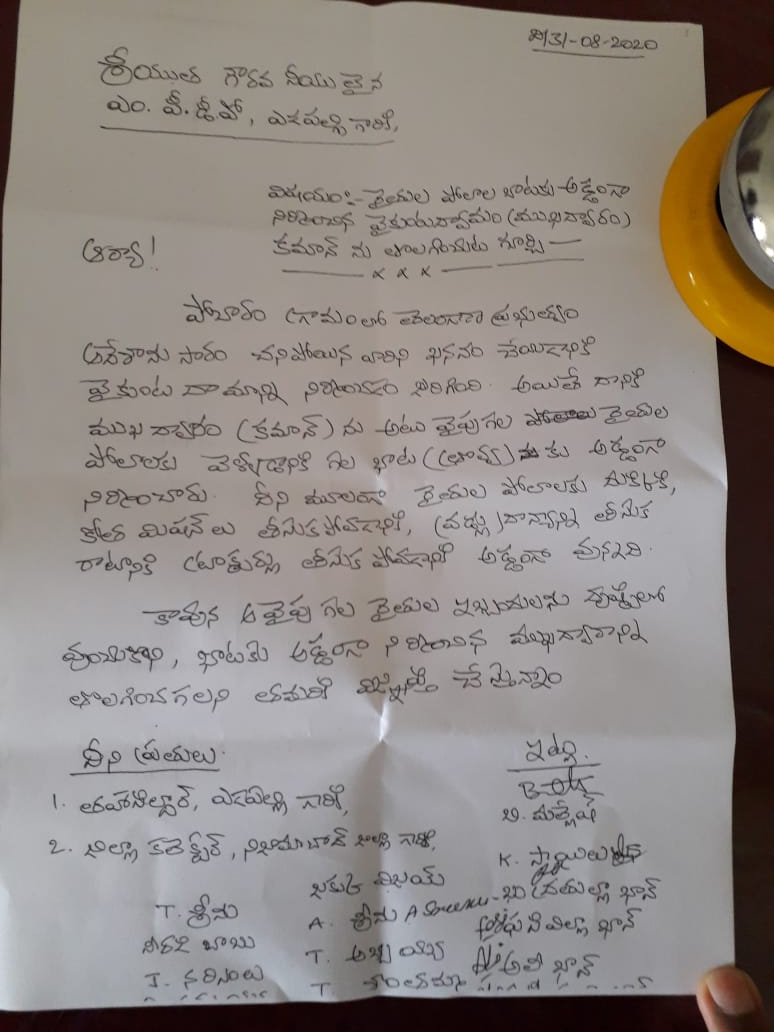 ది/31-08-2020
శ్రీయుత గౌరవ నీయులైన
ఎం. పీ. డీ. వో, ఎడపల్లి గారికి,
విషయం:- రైతుల పోలాల బాటకు అడ్డంగా
నిర్మించిన వైకుంఠదామం (ముఖద్వారం)
ఆర్యా! కమాన్ ను తొలగించుట గూర్చి —
x x x
పోచారం గ్రామంలో తెలంగాణ ప్రభుత్వం
ఆదేశాను సారం చనిపోయిన వారిని ఖననం చేయడానికి
వైకుంట దామాన్ని నిర్మించడం జరిగింది. అయితే దానికి
ముఖ ద్వారం (కమాన్) ను అటు వైపుగల రైతుల
పోలాలకు వెళ్ళడానికి గల బాట కు అడ్డంగా
నిర్మించారు. దీని మూలంగా రైతుల పోలాలకు
కోత మిషన్ లు తీసుక పోవడానికి, (వడ్లు) దాన్యాన్ని తీసుక
రావటానికి ట్రాక్టర్లు తీసుక పోవడానికి అడ్డంగా వున్నది.
కావున ఆ వైపు గల రైతుల ఇబ్బందులను దృష్టిలో
వుంచుకొని, బాటకు అడ్డంగా నిర్మించిన ముఖద్వారాన్ని
తొలగించగలని తమరికి విజ్ఞప్తి చేస్తున్నాం
దీని ప్రతులు. ఇట్లు.
1. తహసీల్దార్, ఎడపల్లి గారికి,
బి. మల్లేష్
2. జిల్లా కలెక్టర్, నిజామాబాద్ జిల్లా గారికి,
K. సాయిలు
విజయ్
T. శ్రీను A. శ్రీను A Sreenu ఖాన్
బాబు T. అబ్బయ్య ఖాన్
J. నర్సింలు T. శాంతమ్మ అలీ ఖాన్